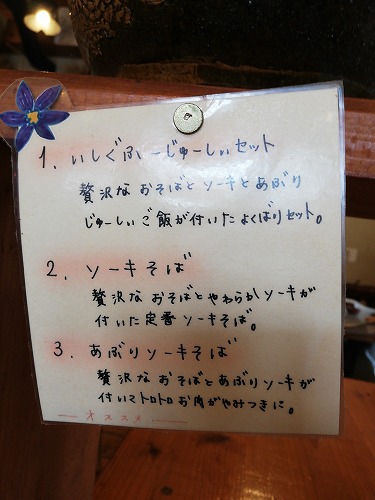 1. いしぐふーじゅーしぃセット
贅沢な おそばと ソーキと あぶり
じゅーしぃご飯が付いた よくばりセット。
2. ソーキそば
贅沢な おそばと やわらかソーキが
付いた定番 ソーキそば。
3. あぶりソーキそば
贅沢な おそばと あぶりソーキが
付いてトロトロお肉がやみつきに。
オススメ